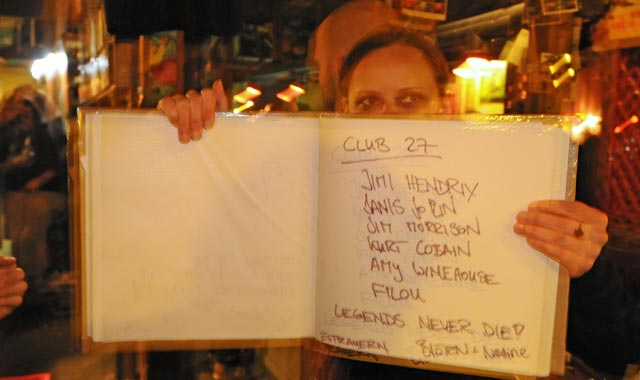 CLUB 27
JIMI HENDRIX
JANIS JOPLIN
JIM MORRISON
KURT COBAIN
AMY WINEHOUSE
FILOU
LEGENDS NEVER DIED
BJÖRN + Nadine